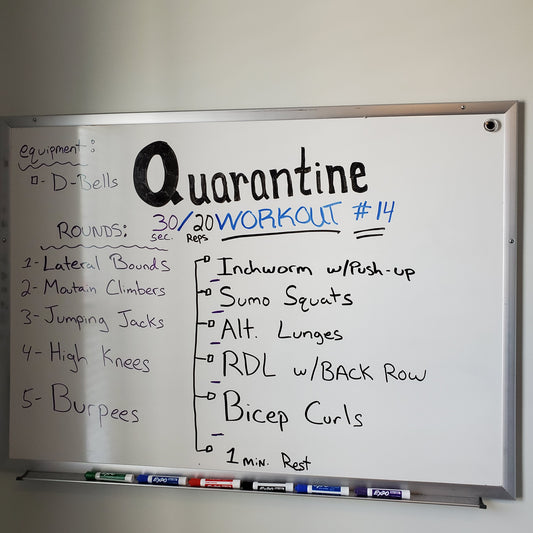 Quarantine
WORKOUT #14
equipment:
- D-Bells
30/20
sec. Reps
ROUNDS:
1- Lateral Bounds
2- Moutain Climbers
3- Jumping Jacks
4- High Knees
5- Burpees
Inchworm w/Push-up
Sumo Squats
Alt. Lunges
RDL w/BACK Row
Bicep Curls
1 min. Rest
EXPO
EXPO
EXPO
EXPO
EXPO
EXPO